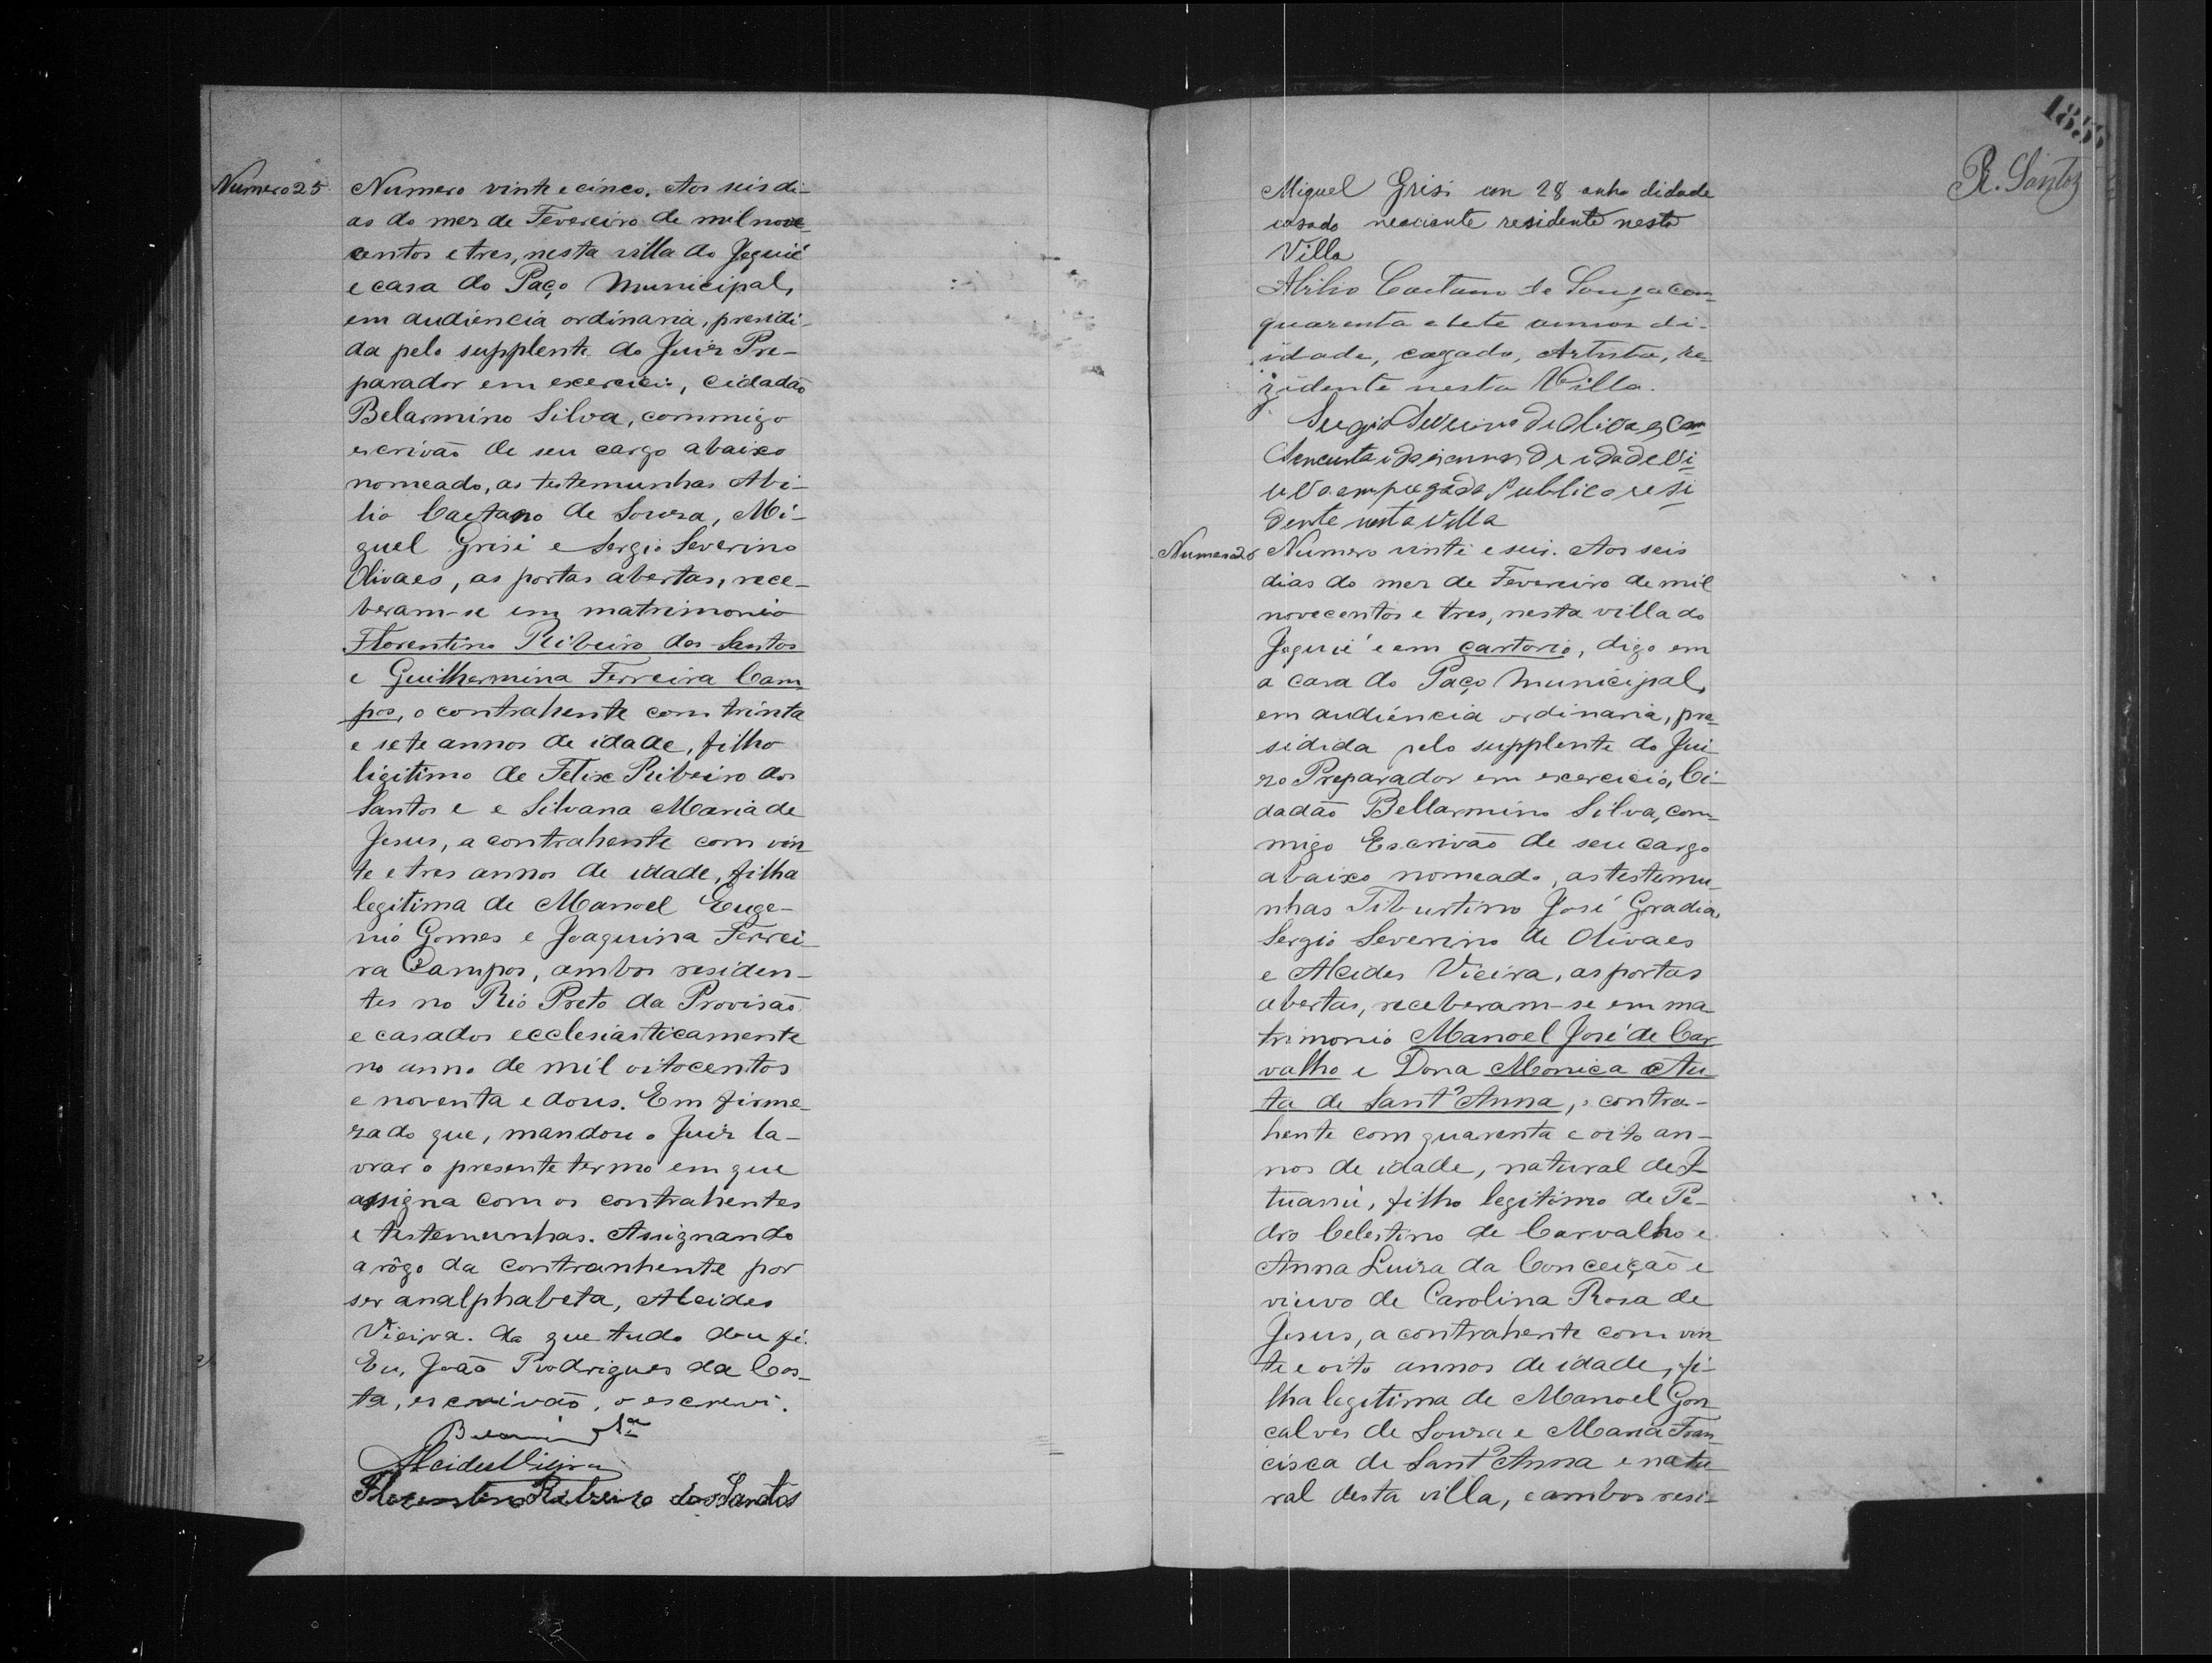 Numero 25
Numero vinte e cinco. Aos seis di-
as do mez de Fevereiro de mil nove-
centos e tres, nesta villa do Jequié
e casa do Paço Municipal,
em audiencia ordinaria, presidi-
da pelo supplente do Juiz Pre-
parador em exercicio, cidadão
Belarmino Silva, commigo
escrivão de seu cargo abaixo
nomeado, as testemunhas Abi-
lio Caetano de Souza, Mi-
guel Grisi e Sergio Severino
Olivaes, as portas abertas, rece-
beram-se em matrimonio
Florentino Ribeiro dos Santos
e Guilhermina Ferreira Cam
pos, o contrahente com trinta
e sete annos de idade, filho
ligitimo de Felix Ribeiro dos
Santos e e Silvana Maria de
Jesus, a contrahente com vin
te e tres annos de idade, filha
legitima de Manoel Euge-
nio Gomes e Joaquina Ferrei-
ra Campos, ambos residen-
tes no Rio Preto da Provisão
e casados ecclesiasticamente
no anno de mil oitocentos
e noventa e dous. Em firme-
za do que, mandou o Juiz la-
vrar o presente termo em que
assigna com os contrahentes
e testemunhas. Assignando
a rôgo da contranhente por
ser analphabeta, Alcides
Vieira. do que tudo dou fé.
Eu, João Rodrigues da Cos-
ta, escrivão, o escrevi.
Alcides Vieira
Florentino Ribeiro dos Santos
185
R. Santos
Miguel Grisi con 28 anho didade
casado residente nesta
Villa
Abilio Caetano de Souza com
quarenta e sete annos di-
idade, cazado, Artista, re-
zidente nesta Villa.
Sergio Severino de Olivaes Com
de idade Vi
uvo empregado Publico resi
dente nesta Villa
Numero 26
Numero vinte e seis. Aos seis
dias do mez de Fevereiro de mil
novecentos e tres, nesta villa do
Jequié e em cartorio, digo em
a casa do Paço Municipal,
em audiencia ordinaria, pre-
sidida pelo supplente do Jui-
zo Preparador em exercicio, Ci-
dadão Bellarmino Silva, com-
migo Escrivão de seu cargo
abaixo nomeado, as testemu-
nhas Tiburtino José Gradia,
Sergio Severino de Olivaes
e Alcides Vieira, as portas
abertas, receberam-se em ma
trimonio Manoel José de Car
valho e Dona Monica Au-
ta de Sant'Anna, o contra-
hente com quarenta e oito an-
nos de idade, natural de I-
tuassú, filho legitimo de Pe-
dro Celestino de Carvalho e
Anna Luiza da Conceição e
viuvo de Carolina Rosa de
Jesus, a contrahente com vin
te e oito annos de idade, fi-
lha legitima de Manoel Gon
calves de Souza e Maria Fran
cisca de Sant'Anna e natu
ral desta villa, e ambos resi-